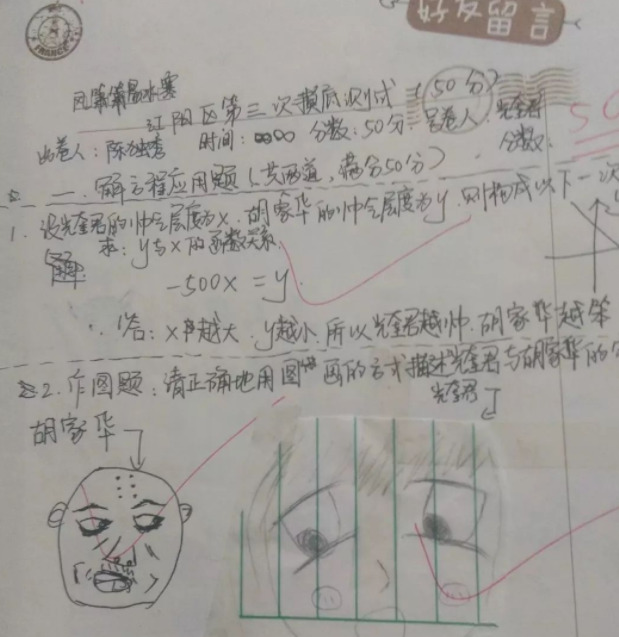 好友留言
FRANCE
江阳区第三次摸底测试(50分)
出卷人:陈独秀 时间:∞∞ 分数:50分 答卷人:光奎君
分数:50
一.解方程应用题(共两道,满分50分)
1.设光奎君的帅气层度为x.胡家华的帅气层度为y.则构成以下一次
求:y与x的函数关系
解:
-500x=y.
答:x越大.y越小.所以光奎君越帅.胡家华越笨
2.作图题:请正确地用图画的方式描述光奎君与胡家华的
光奎君
胡家华